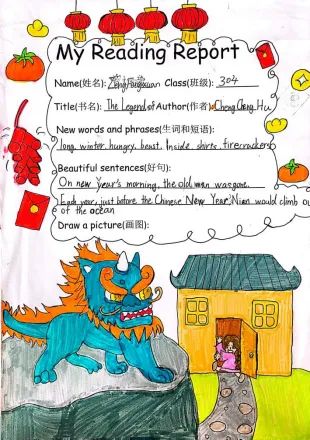 My Reading Report
Name(姓名): Class(班级): 304
Title(书名): The Legend of Author(作者): Cheng Cheng Hu
New words and phrases(生词和短语):
long. winter. hungry. beast. Inside. shirts. firecrackers
Beautiful sentences(好句):
On new year's morning, the old man was gone.
Each year, just before the Chinese New Year, Nian would climb ou
of the ocean
Draw a picture(画图):